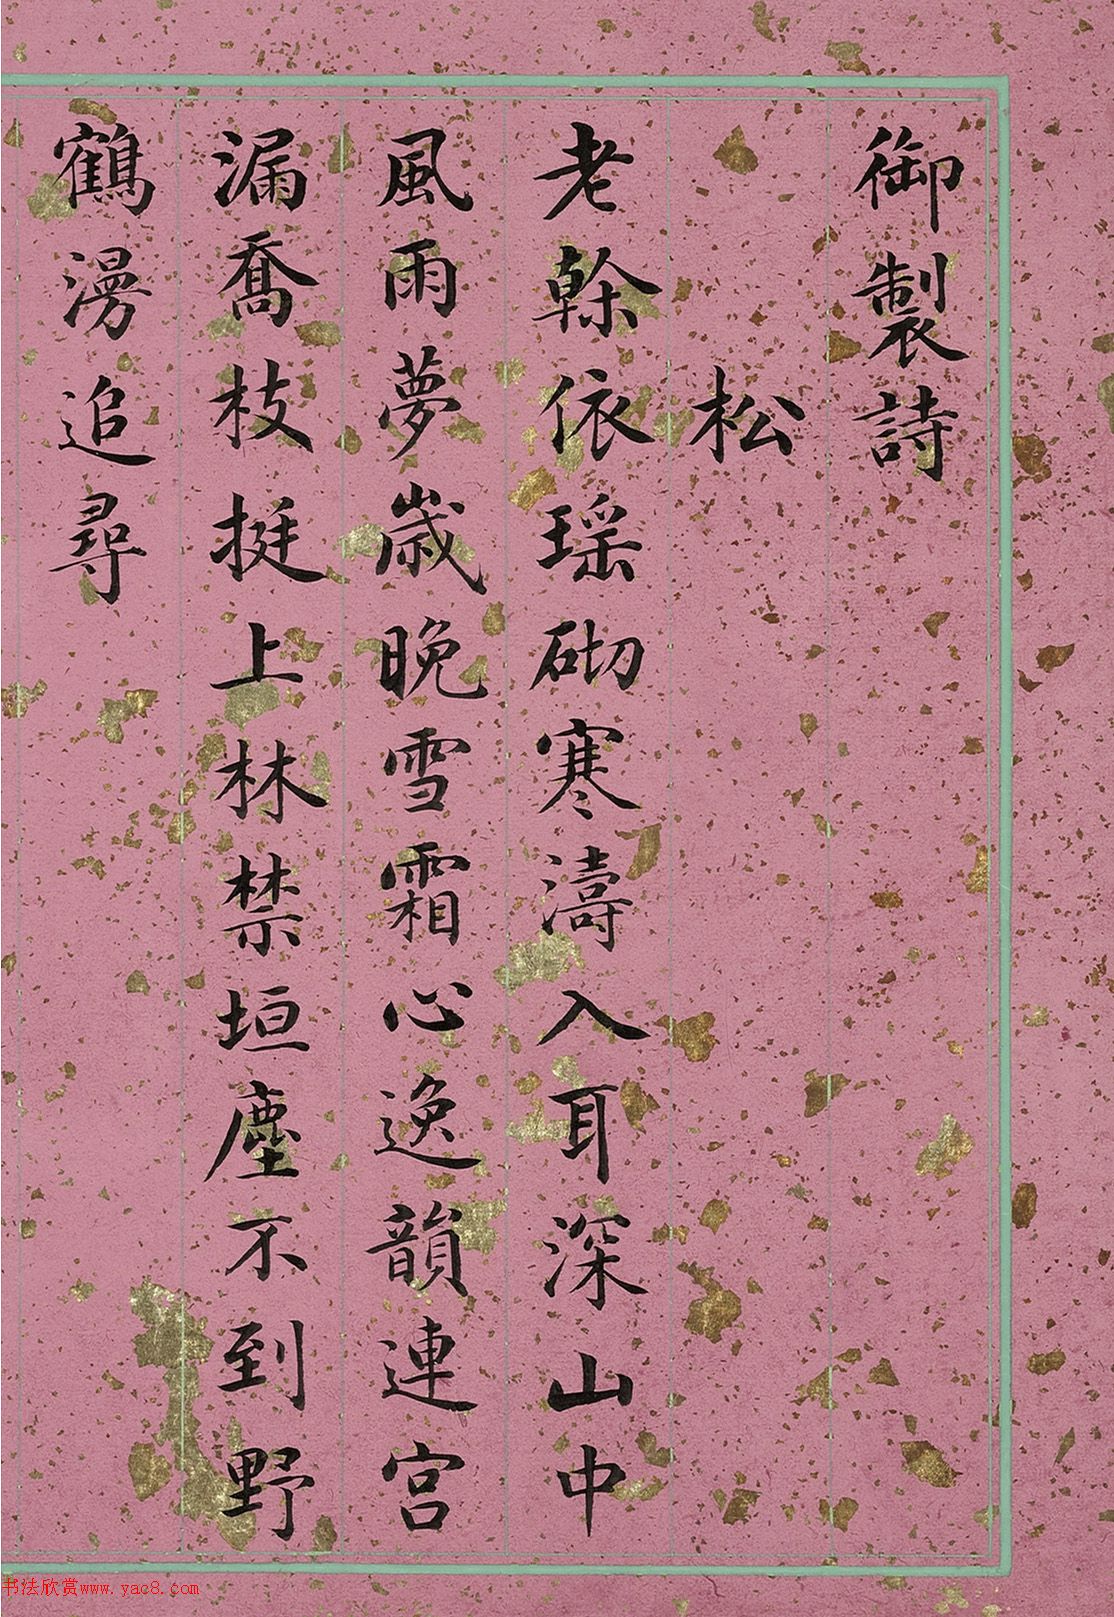 御製詩
松
老榦依瑶砌寒濤入耳深山中
風雨夢歲晚雪霜心逸韻連宮
漏喬枝挺上林禁垣塵不到野
鶴漫追尋
书法欣赏www.yac8.com